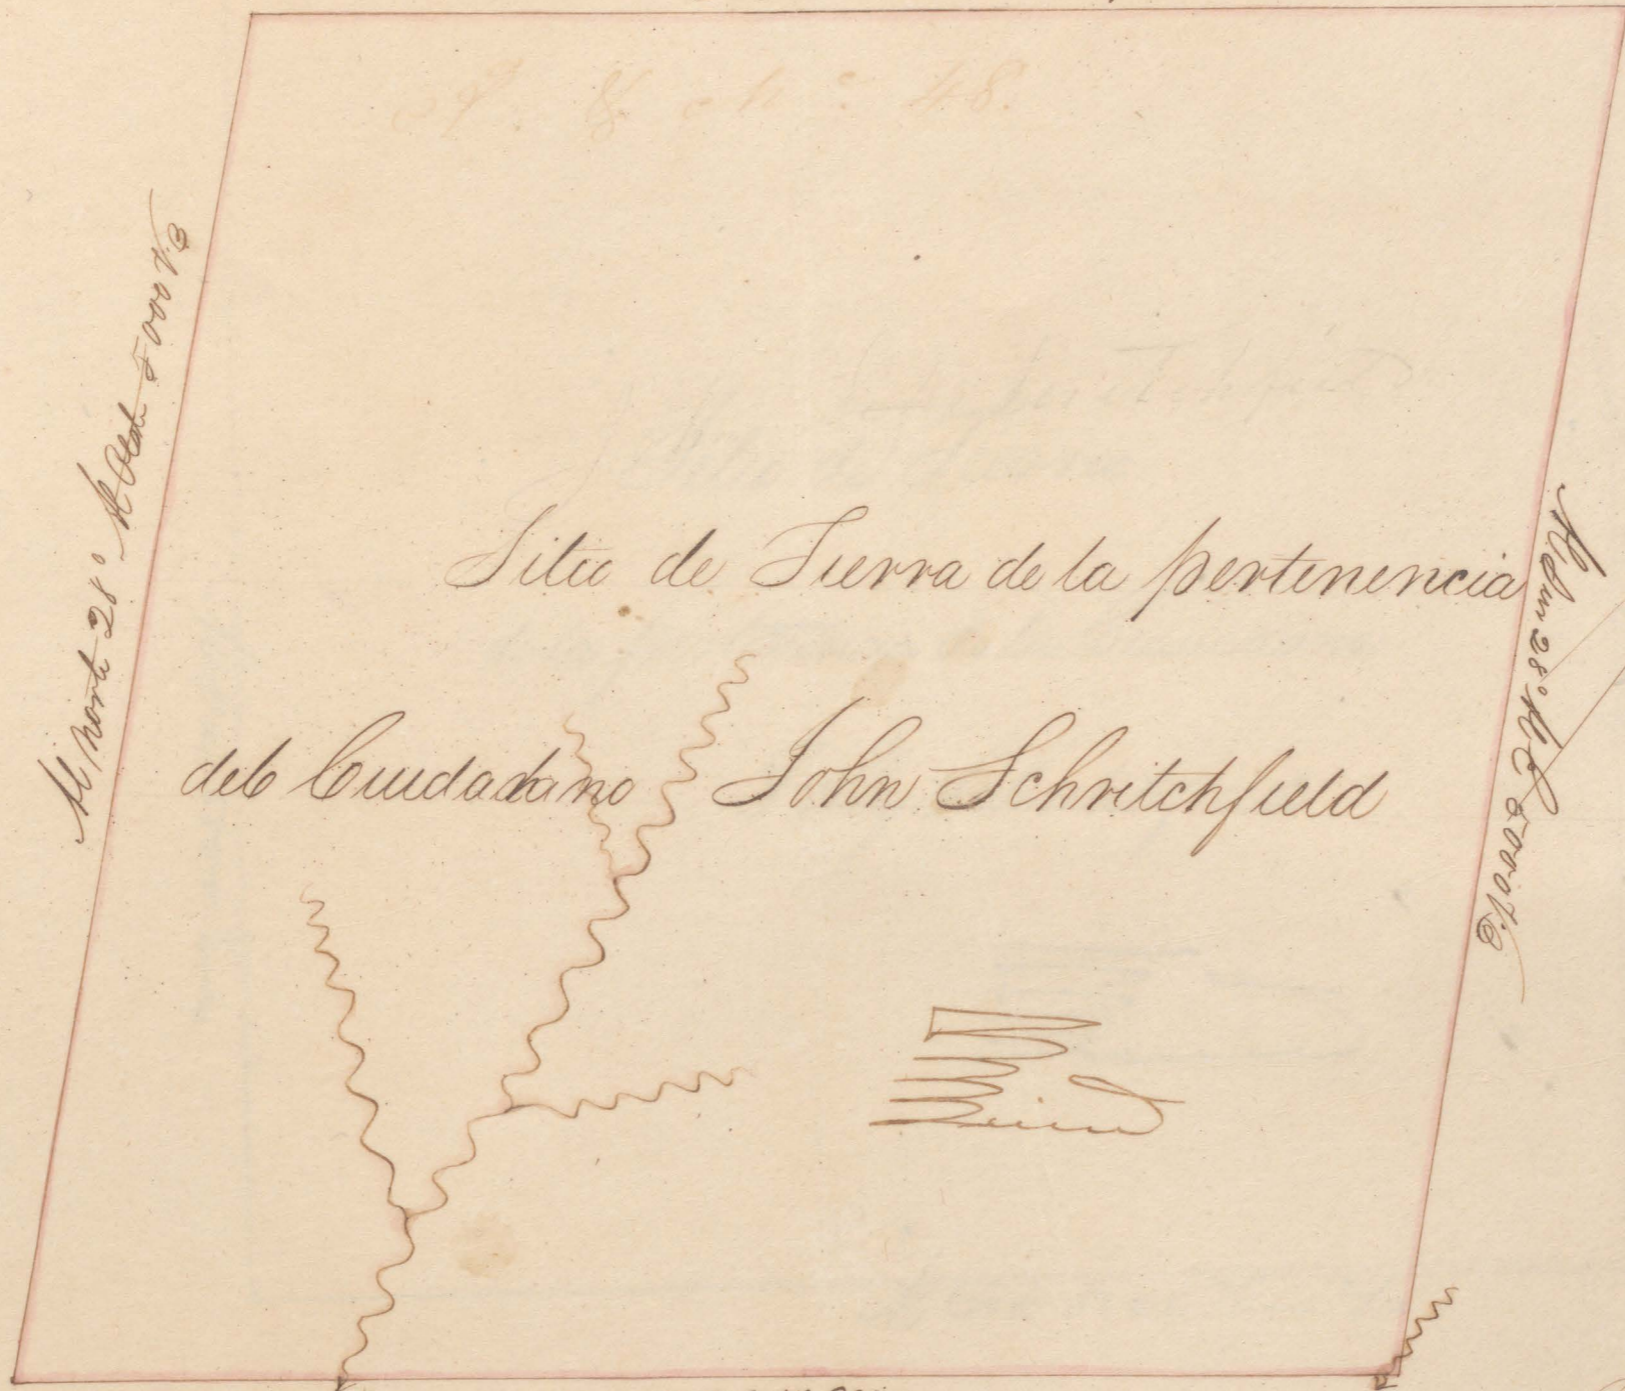 Al norte 28° Al Oeste 5000 Vs
Sitio de Tierra de la pertenencia
del Ciudadano John Schritchfield
Al Sur 28° Al E 5000 Vs